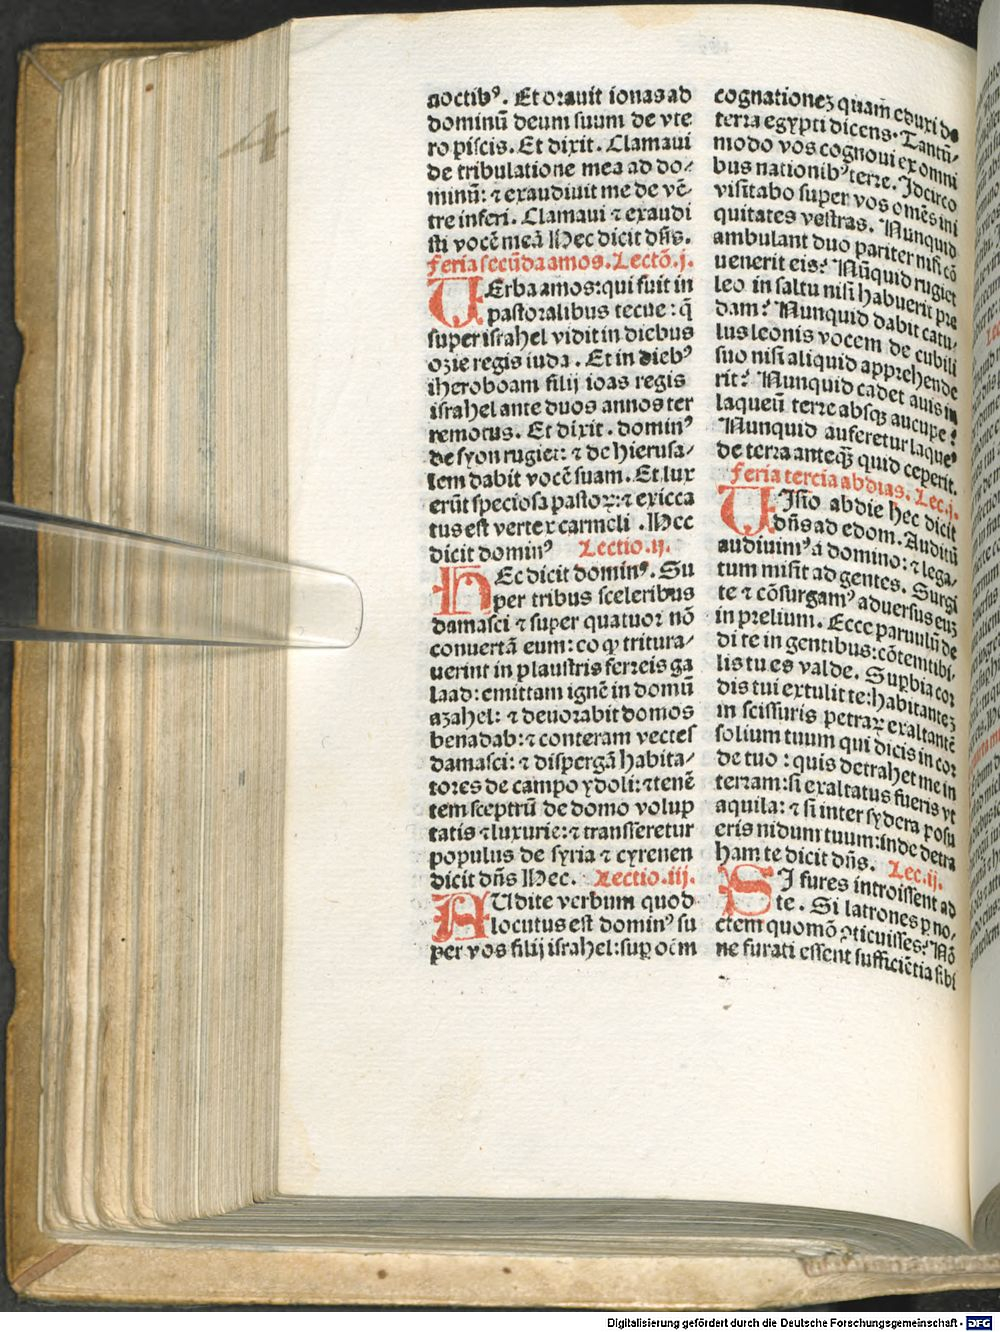 noctib⁹. Et orauit ionas ad
dominū deum suum de vte
ro piscis. Et dixit. Clamaui
de tribulatione mea ad do-
minū: ⁊ exaudiuit me de vē-
tre inferi. Clamaui ⁊ exaudi
sti vocē meā Hec dicit dn̄s.
feria secūda amos. Lectō. j.
VErba amos: qui fuit in
pastoralibus tecue: q̄
super israhel vidit in diebus
ozie regis iuda. Et in dieb⁹
iheroboam filij ioas regis
israhel ante duos annos ter
remotus. Et dixit. domin⁹
de syon rugiet: ⁊ de hierusa-
lem dabit vocē suam. Et lux
erūt speciosa pastoꝝ: ⁊ exicca
tus est vertex carmeli. Hec
dicit domin⁹ Lectio. ij.
HEc dicit domin⁹. Su
per tribus sceleribus
damasci ⁊ super quatuor nō
conuertā eum: eo ꝙ tritura-
uerint in plaustris ferreis ga
laad: emittam ignē in domū
azahel: ⁊ deuorabit domos
benadab: ⁊ conteram vectes
damasci: ⁊ dispergā habita-
tores de campo ydoli: ⁊ tenē
tem sceptrū de domo volup
tatis ⁊ luxurie: ⁊ transferetur
populus de syria ⁊ cyrenen
dicit dn̄s Hec. Lectio. iij.
AUdite verbum quod
locutus est domin⁹ su
per vos filij israhel: suꝑ oēm
cognationeꝫ quam eduxi de
terra egypti dicens. Tantū-
modo vos cognoui ex omni
bus nationib⁹ terre. Idcirco
visitabo super vos omēs ini
quitates vestras. Nunquid
ambulant duo pariter nisi cō
uenerit eis? Nūquid rugiet
leo in saltu nisi habuerit pre
dam? Nunquid dabit catu-
lus leonis vocem de cubili
suo nisi aliquid apprehende
rit? Nunquid cadet auis in
laqueū terre absqꝫ aucupe?
Nunquid auferetur laque⁹
de terra anteqꝫ quid ceperit.
feria tercia abdias. Lec. j.
VIsio abdie hec dicit
dn̄s ad edom. Auditū
audiuim⁹ a domino: ⁊ lega-
tum misit ad gentes. Surgi
te ⁊ cōsurgam⁹ aduersus euꝫ
in prelium. Ecce paruulū de
di te in gentibus: cōtemtibi-
lis tu es valde. Suꝑbia cor
dis tui extulit te: habitanteꝫ
in scissuris petraꝝ exaltantē
solium tuum qui dicis in cor
de tuo: quis detrahet me in
terram: si exaltatus fueris vt
aquila: ⁊ si inter sydera posu
eris nidum tuum: inde detra
ham te dicit dn̄s. Lec. ij.
SI fures introissent ad
te. Si latrones ꝑ no-
ctem quomō ꝯticuisses? Nō
ne furati essent sufficiētia sibi
Digitalisierung gefördert durch die Deutsche Forschungsgemeinschaft - DFG